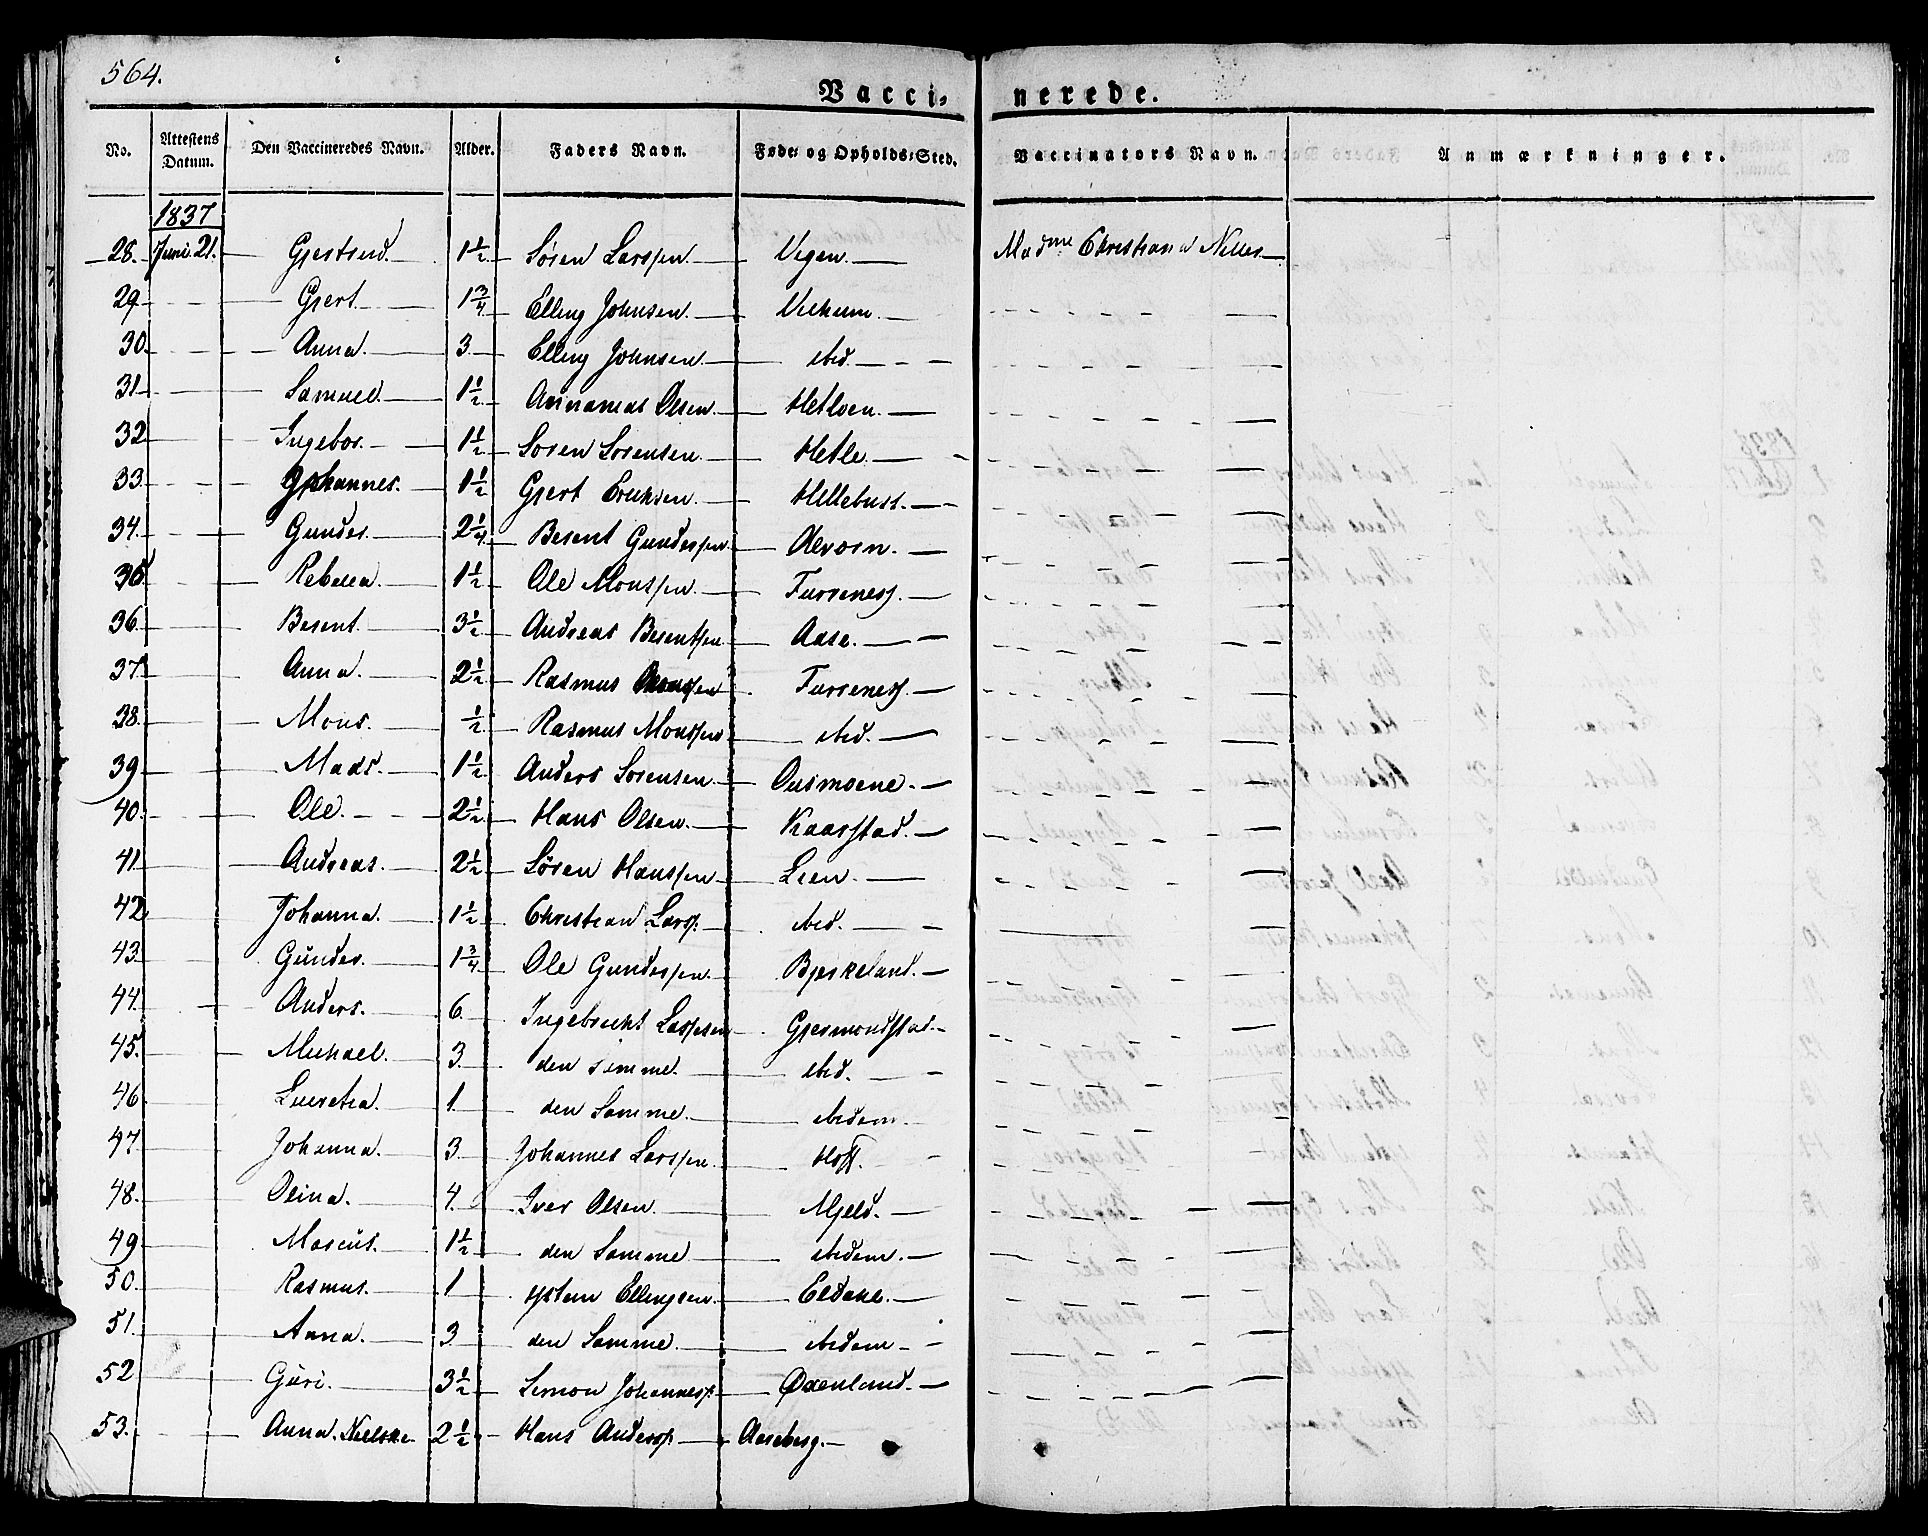 564.
Vacci- nerede.
No. Attestens Datum. Den Vaccineredes Navn. Alder. Faders Navn. Føde- og Opholds-Sted. Vaccinators Navn. Anmærkninger.
1837
28. Juni 21. Gjertrud. 1 1/2 Søren Larssen Vegen. Madme Christiana Nilles
29 Gjert 1 3/4 Elling Johnsen.
30. Anna. 3 Elling Johnsen ibid.
31 Samuel. 1 1/2 Annanias Olsen Hetloen.
32 Ingebor. 1 1/2 Soren Sorensen Hetle.
33. Johannes. 1 1/2 Gjert Ericksen Hellebust.
34. Gunder. 2 1/4 Besent Gunderssen
35 Rebecca. 1 1/2 Ole Monssen Furrenes.
36. Besent. 3 1/2 Andreas Besentsen Aase.
37. Anna. 2 1/2 Rasmus Furrenes.
38. Mons. 1/2 Rasmus Monssen ibid.
39 Mads. 1 1/2 Anders Sorensen Ousmoene.
40. Ole. 2 1/2 Hans Olsen. Kaarstad.
41 Andreas. 2 1/2 Søren Hanssen Leen.
42 Johanna. 1 1/2 Christian Larss. ibid.
43. Gunder. 1 3/4 Ole Gunderssen. Bjerkeland.
44. Anders. 6. Ingebricht Larssen Gjermondstad.
45. Michael. 3. den samme. ibid.
46 Lucretia. 1. den Samme. ibidem.
47. Johanna. 3. Johannes Larssen Hoff.
48. Olina. 4. Iver Olsen. Mjeld.
49 Marcus. 1 1/2 den Samme ibidem.
50. Rasmus. 1 Ellingsen
51. Anna. 3 den Samme ibidem
52 Guri. 3 1/2 Simon Johanness. Øxenland.
53. Anna. Nielske 2 1/2 Hans Anderss. Aaseberg.